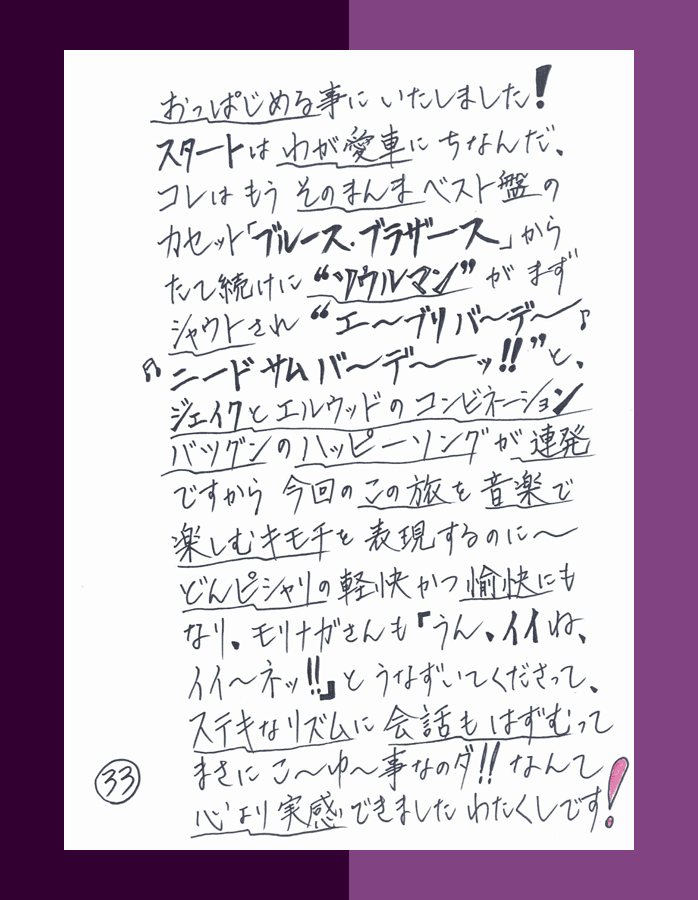 おっぱじめる事に いたしました!
スタートは わが愛車に ちなんだ、
コレは もう そのまんま ベスト盤 の
カセット「ブルース・ブラザース」から
たて続けに “ソウルマン” が まず
シャウトされ “エ〜ブリ バ〜デ〜♪
♫ニード サム バ〜デ〜ーッ!!” と、
ジェイクと エルウッドの コンビネーション
バツグンの ハッピーソング が 連発
ですから 今回の この旅 を 音楽で
楽しむキモチを 表現するのに〜
どんピシャリの 軽快 かつ 愉快にも
なり、モリナガさんも『うん、イイね、
イイ〜ネッ!!』と うなずいてくださって、
ステキなリズムに 会話も はずむって
まさに こ〜ゆ〜事なのダ!! なんて
心より 実感 できました わたくしです!
33